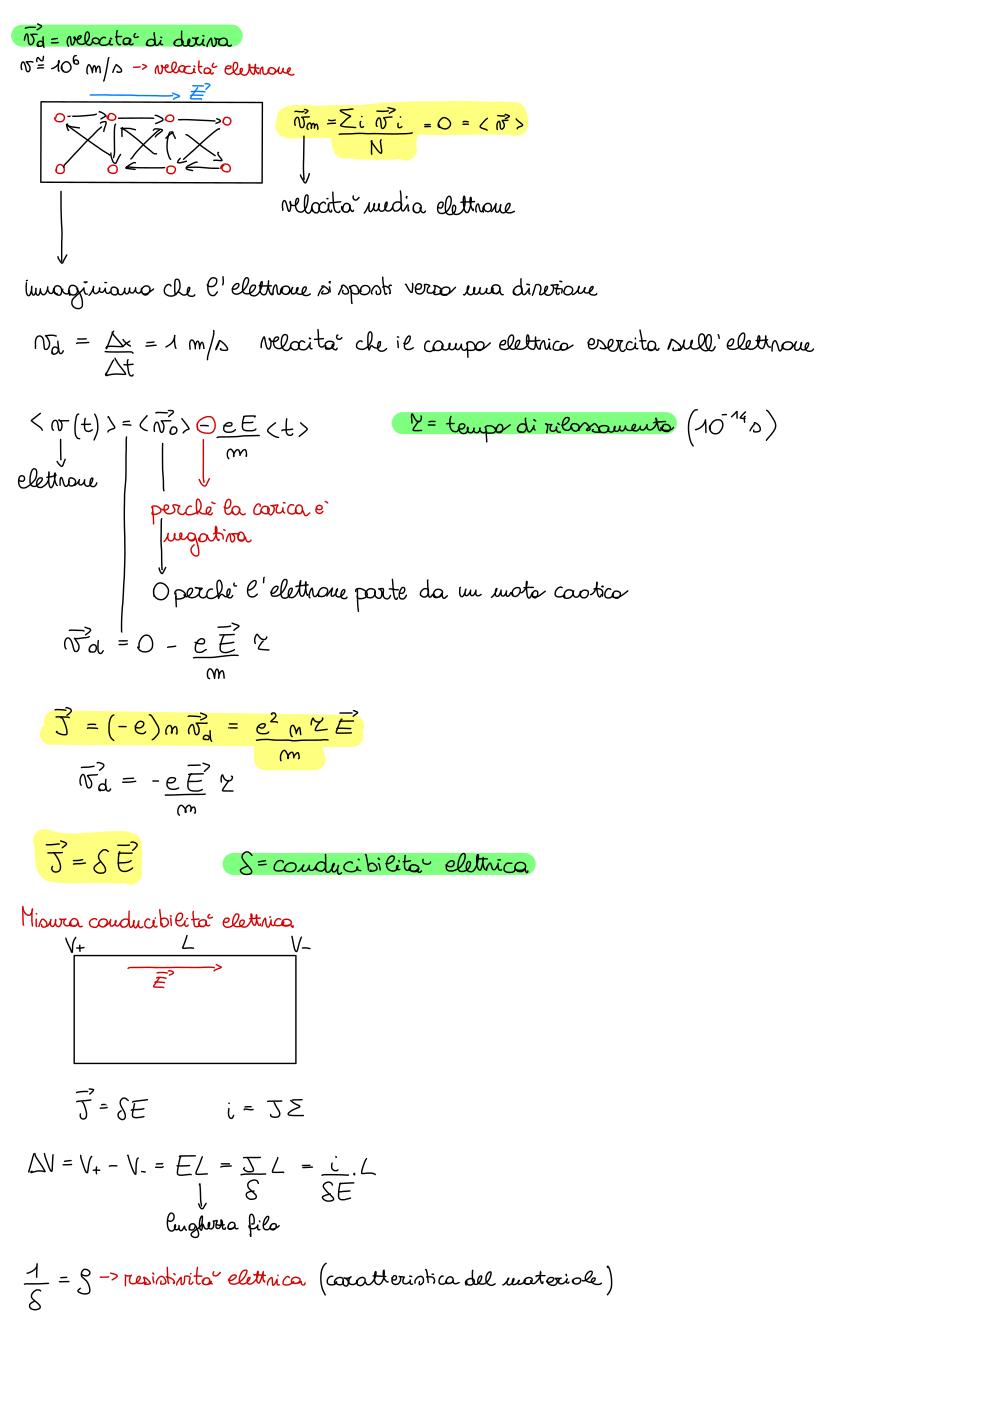 v⃗d = velocità di deriva
v ≃ 10⁶ m/s → velocità elettrone
E⃗
v⃗m = Σi v⃗i / N = 0 = < v⃗ >
velocità media elettrone
immaginiamo che l'elettrone si sposti verso una direzione
vd = Δx / Δt = 1 m/s velocità che il campo elettrico esercita sull'elettrone
< v(t) > = < v⃗o > - eE / m < t > τ = tempo di rilassamento (10⁻¹⁴ s)
elettrone
perchè la carica è
negativa
0 perchè l'elettrone parte da un moto caotico
v⃗d = 0 - eE⃗ / m τ
J⃗ = (-e) n v⃗d = e² n τ / m E⃗
v⃗d = - eE⃗ / m τ
J⃗ = δ E⃗ δ = conducibilità elettrica
Misura conducibilità elettrica
V+ L V-
E⃗
J⃗ = δE i = JΣ
ΔV = V+ - V- = EL = J / δ L = i / δE . L
lunghezza filo
1 / δ = ρ → resistività elettrica (caratteristica del materiale)